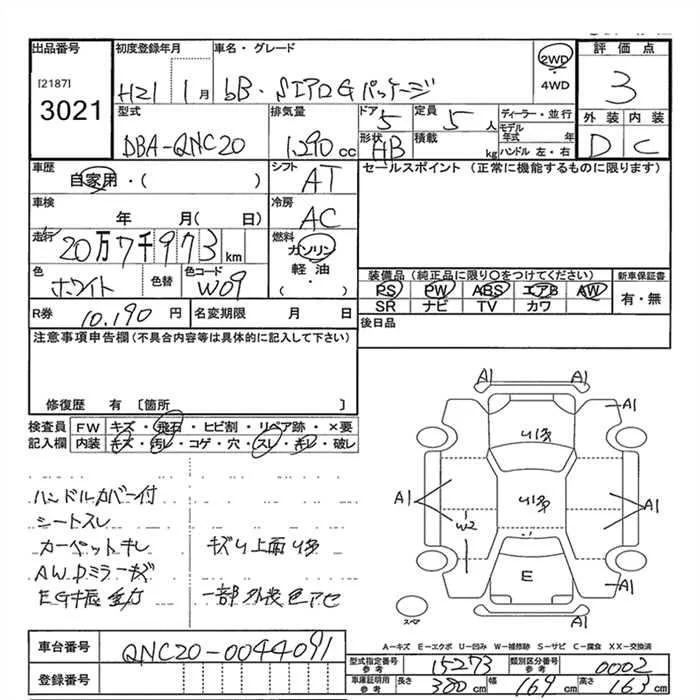 出品番号 初度登録年月 車名・グレード 2WD 評価点
[2187] H21 1月 bB・SエアロGパッケージ 4WD 3
3021
型式 排気量 ドア 5 定員 5人 ディーラー・並行 外装 内装
DBA-QNC20 1,290cc 形状 HB 積載 kg モデル年式 年 D C
ハンドル 左・右
車歴 自家用・( ) シフト AT セールスポイント (正常に機能するものに限ります)
車検 年 月( 日) 冷房 AC
走行 20万7千973km 燃料 ガソリン
軽油
・( )
色 ホワイト 色替 色コード W09
装備品 (純正品に限り○をつけてください) 新車保証書
PS PW ABS エアB AW 有・無
SR ナビ TV カワ
R券 10,190円 名変期限 月 日 後日品
注意事項申告欄(不具合内容等は具体的に記入して下さい)
修復歴 有 〔箇所 〕
検査員 FW キズ・飛石・ヒビ割・リペア跡・×要
記入欄 内装 キズ・汚レ・コゲ・穴・スレ・キレ・破レ
ハンドルカバー付
シートスレ
カーペットキレ キズU上面U多
ミラーキズ
一部外装色アセ
A1 A1
A1 A1
U多
A1 U多 A1
W2
E
A1
A1 A1
スペア
A-キズ E-エクボ U-凹み W-補修跡 S-サビ C-腐食 XX-交換済
車台番号 QNC20-0044091
型式指定番号 15273 類別区分番号 0002
登録番号 車庫証明用参考 長さ 380cm 幅 169cm 高さ 163cm